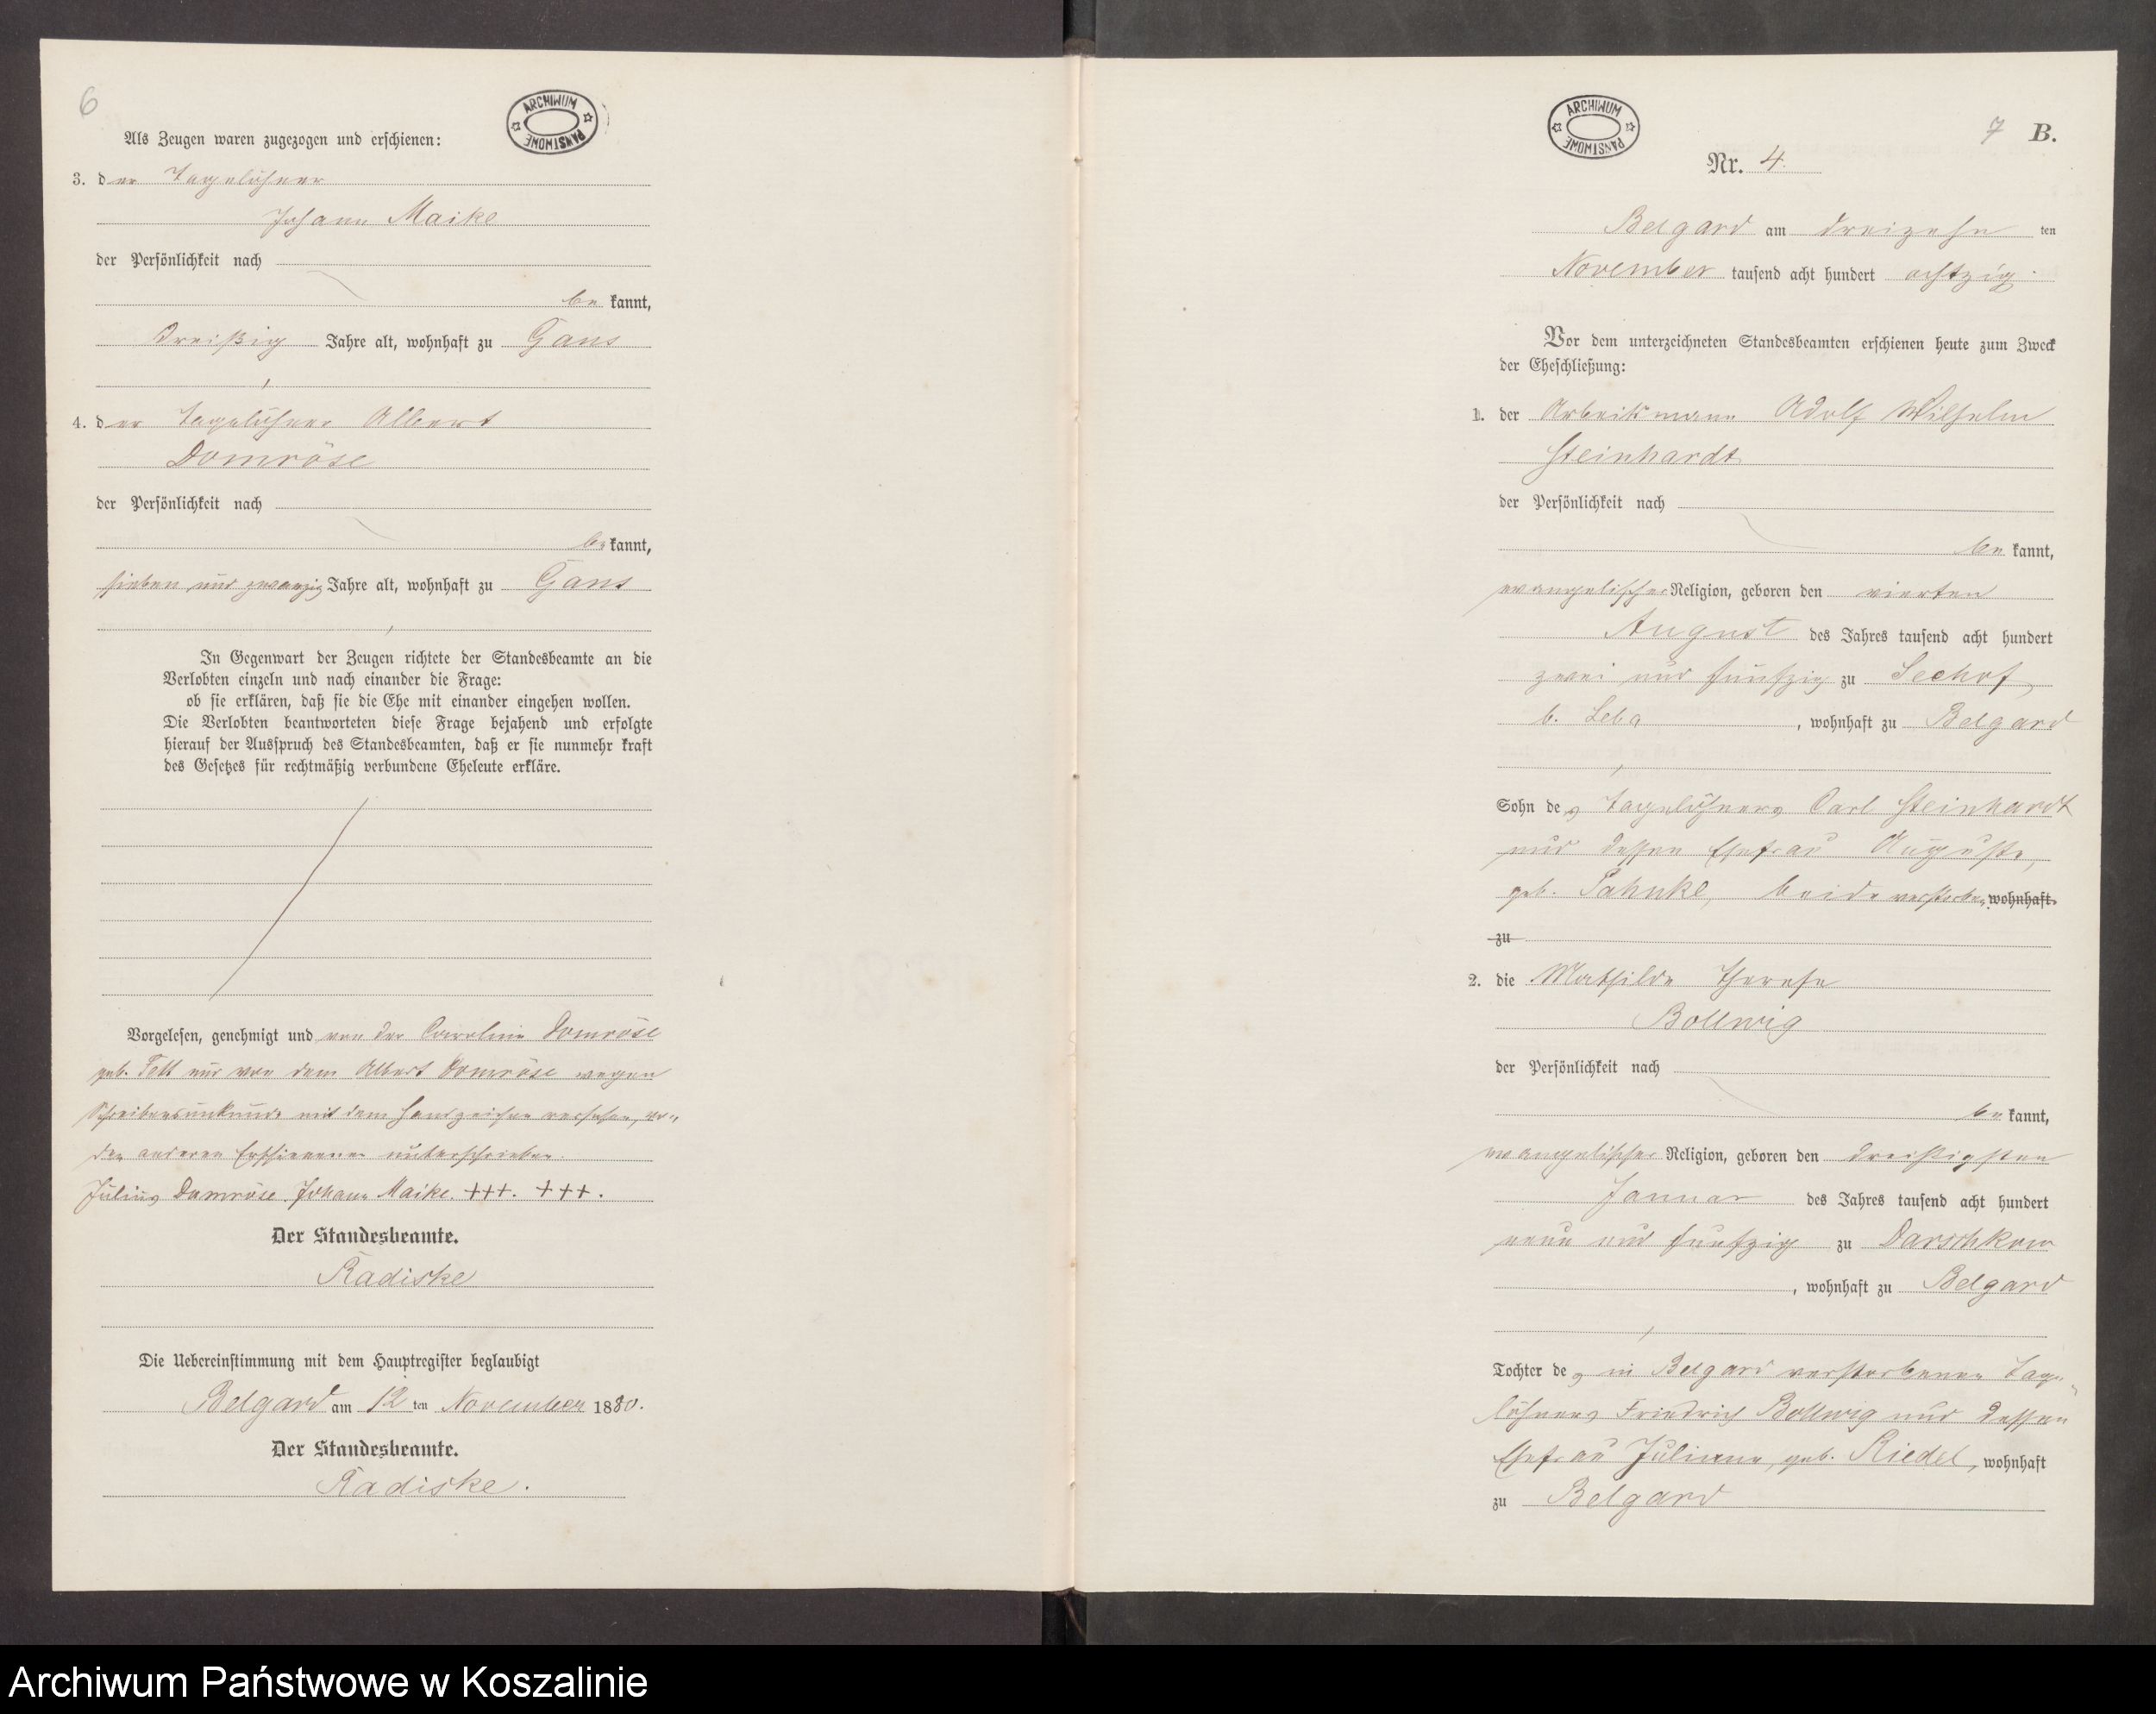 6
ARCHIWUM PAŃSTWOWE
Als Zeugen waren zugezogen und erschienen:
3. der Tagelöhner
Johann Maike
der Persönlichkeit nach
be kannt,
dreißig Jahre alt, wohnhaft zu Gans
4. der Tagelöhner Albert
Domröse
der Persönlichkeit nach
be kannt,
sieben und zwanzig Jahre alt, wohnhaft zu Gans
In Gegenwart der Zeugen richtete der Standesbeamte an die
Verlobten einzeln und nach einander die Frage:
ob sie erklären, daß sie die Ehe mit einander eingehen wollen.
Die Verlobten beantworteten diese Frage bejahend und erfolgte
hierauf der Ausspruch des Standesbeamten, daß er sie nunmehr kraft
des Gesetzes für rechtmäßig verbundene Eheleute erkläre.
Vorgelesen, genehmigt und von der Caroline Domröse
geb. Tell und von dem Albert Domröse wegen
Schreibensunkunde mit dem Handzeichen versehen, von
den anderen Erschienenen unterschrieben.
Julius Domröse. Johann Maike. +++. +++.
Der Standesbeamte.
Radiske
Die Uebereinstimmung mit dem Hauptregister beglaubigt
Belgard am 12 ten November 1880.
Der Standesbeamte.
Radiske.
ARCHIWUM PAŃSTWOWE
7 B.
Nr. 4.
Belgard am dreizehn ten
November tausend acht hundert achtzig.
Vor dem unterzeichneten Standesbeamten erschienen heute zum Zweck
der Eheschließung:
1. der Arbeitsmann Adolf Wilhelm
Steinhardt
der Persönlichkeit nach
be kannt,
evangelischer Religion, geboren den vierten
August des Jahres tausend acht hundert
zwei und funfzig zu Seehof,
b. Leba, wohnhaft zu Belgard
Sohn des Tagelöhners Carl Steinhardt
und dessen Ehefrau Auguste,
geb. Pahnke, beide verstorben, wohnhaft
zu
2. die Mathilde Therese
Bollwig
der Persönlichkeit nach
be kannt,
evangelischer Religion, geboren den dreißigsten
Januar des Jahres tausend acht hundert
neun und funfzig zu Darschkow
, wohnhaft zu Belgard
Tochter des in Belgard verstorbenen Tage-
löhners Friedrich Bollwig und dessen
Ehefrau Juliane, geb. Riedel, wohnhaft
zu Belgard
Archiwum Państwowe w Koszalinie